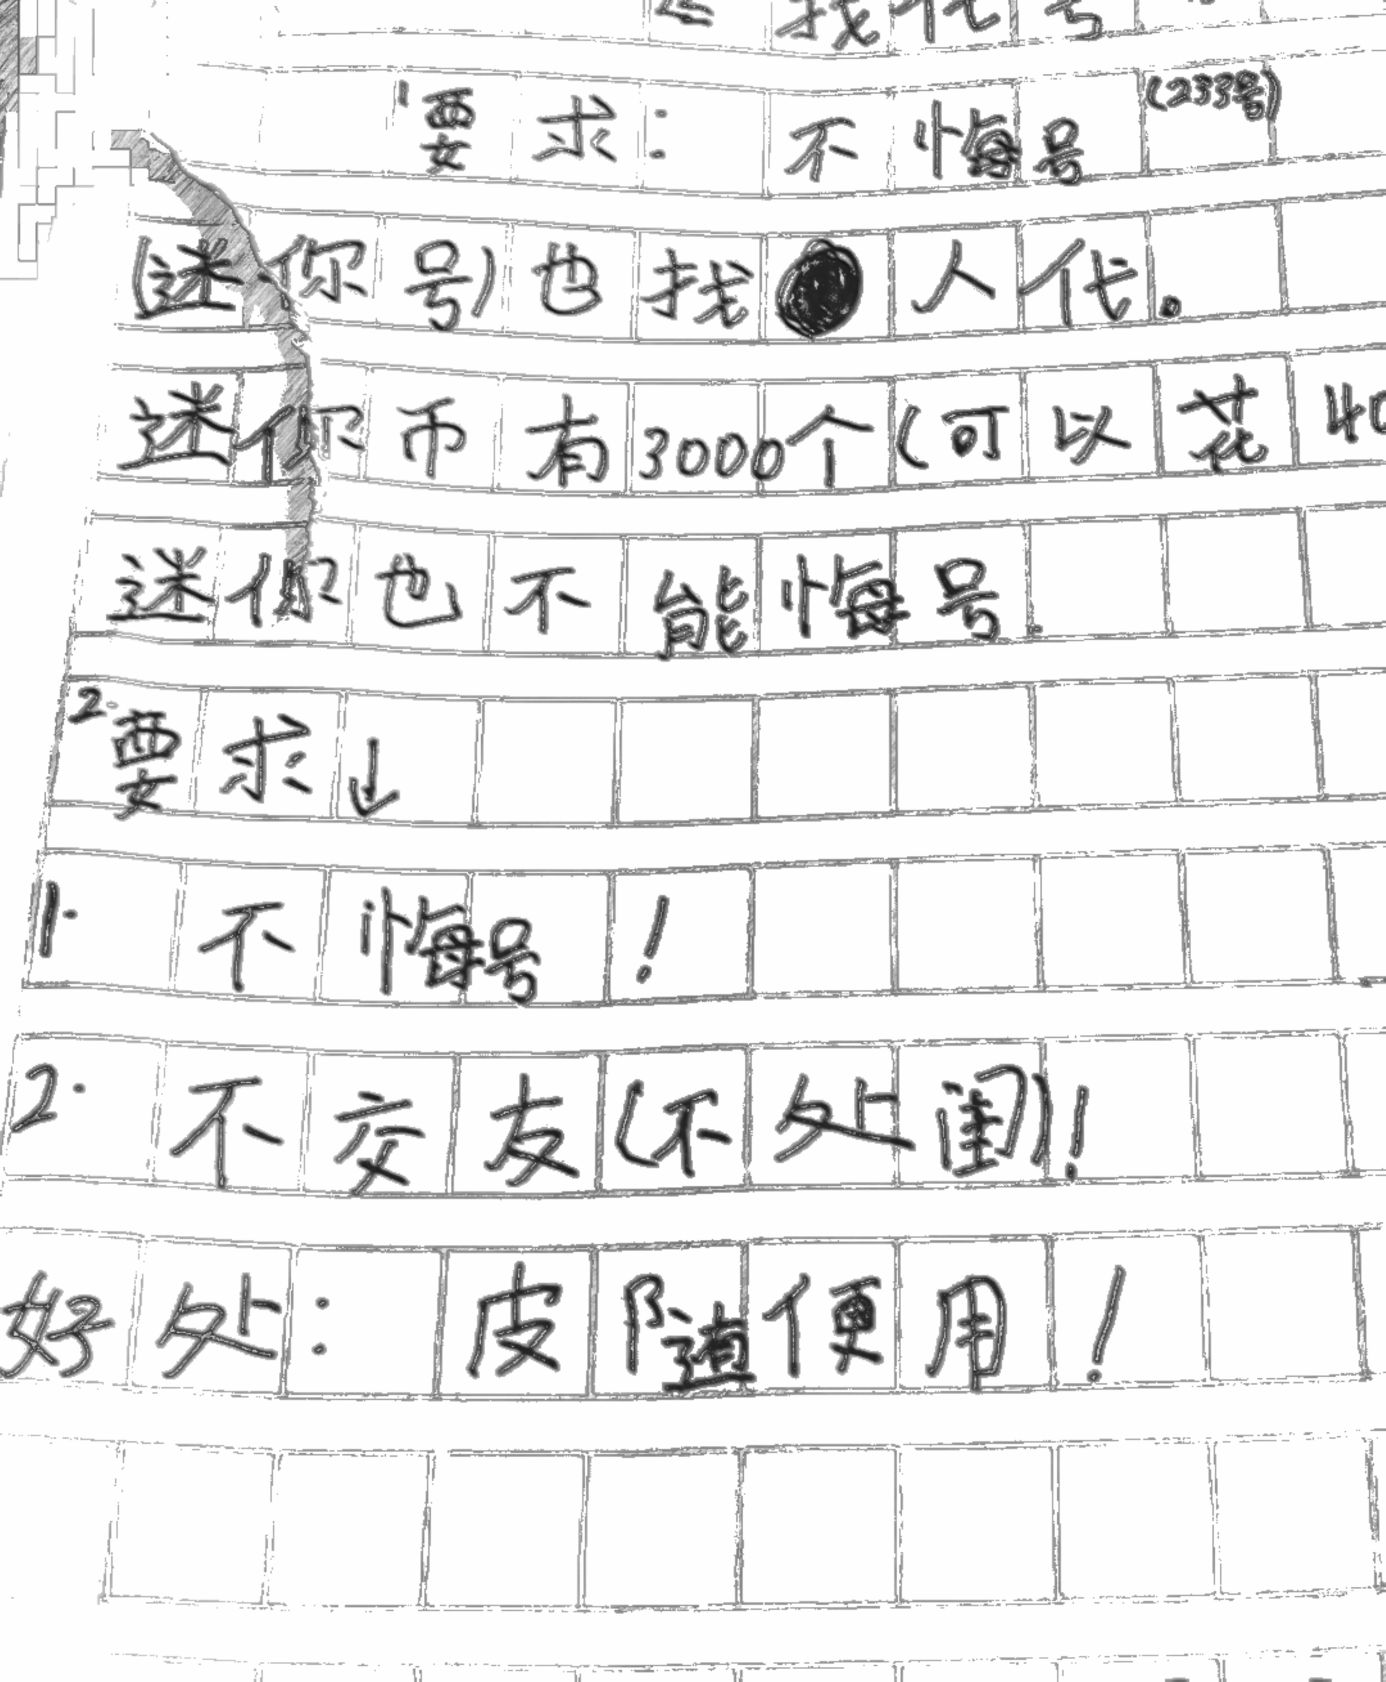 找代号
1要求：不悔号(233号)
(迷你号)也找人代。
迷你币有3000个(可以花40
迷你也不能悔号.
2.要求↓
1.不悔号！
2.不交友(不处闺)！
好处：皮随便用！